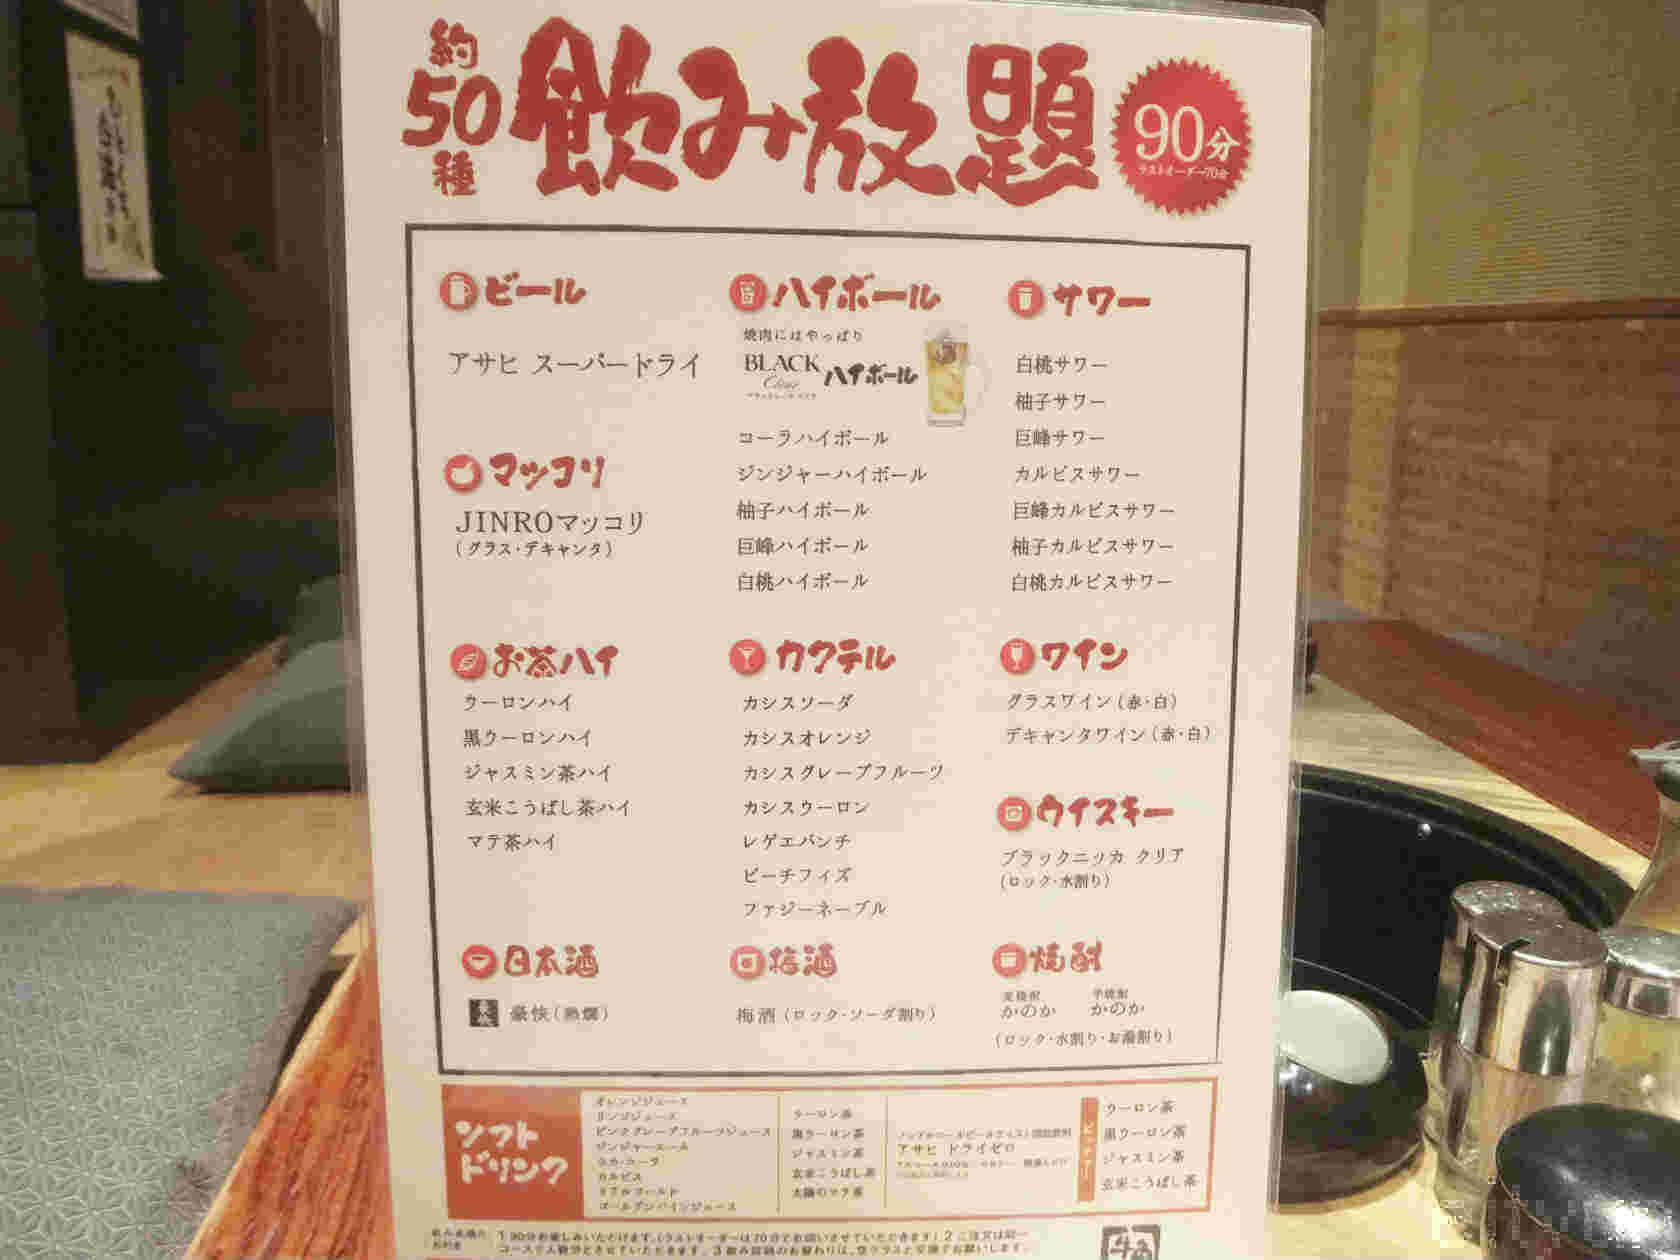 約50種 飲み放題
90分
ラストオーダー70分
ビール
アサヒ スーパードライ
マッコリ
JINROマッコリ
(グラス・デキャンタ)
ハイボール
焼肉にはやっぱり
BLACK Clear ハイボール
コーラハイボール
ジンジャーハイボール
柚子ハイボール
巨峰ハイボール
白桃ハイボール
サワー
白桃サワー
柚子サワー
巨峰サワー
カルピスサワー
巨峰カルピスサワー
柚子カルピスサワー
白桃カルピスサワー
お茶ハイ
ウーロンハイ
黒ウーロンハイ
ジャスミン茶ハイ
玄米こうばし茶ハイ
マテ茶ハイ
カクテル
カシスソーダ
カシスオレンジ
カシスグレープフルーツ
カシスウーロン
レゲエパンチ
ピーチフィズ
ファジーネーブル
ワイン
グラスワイン(赤・白)
デキャンタワイン(赤・白)
ウイスキー
ブラックニッカ クリア
(ロック・水割り)
日本酒
豪快(熱燗)
梅酒
梅酒(ロック・ソーダ割り)
焼酎
麦焼酎 芋焼酎
かのか かのか
(ロック・水割り・お湯割り)
ソフトドリンク
オレンジジュース
リンゴジュース
ピンクグレープフルーツジュース
ジンジャーエール
コカ・コーラ
カルピス
リアルゴールド
ゴールデンパインジュース
ウーロン茶
黒ウーロン茶
ジャスミン茶
玄米こうばし茶
太陽のマテ茶
アサヒ ドライゼロ
ウーロン茶
黒ウーロン茶
ジャスミン茶
玄米こうばし茶
1 90分お楽しみいただけます。(ラストオーダーは70分とお伺いさせていただきます) 2 ご注文は同一
コースで人数分とさせていただきます。 3 飲み放題のお替わりは、空グラスと交換でお願いします。